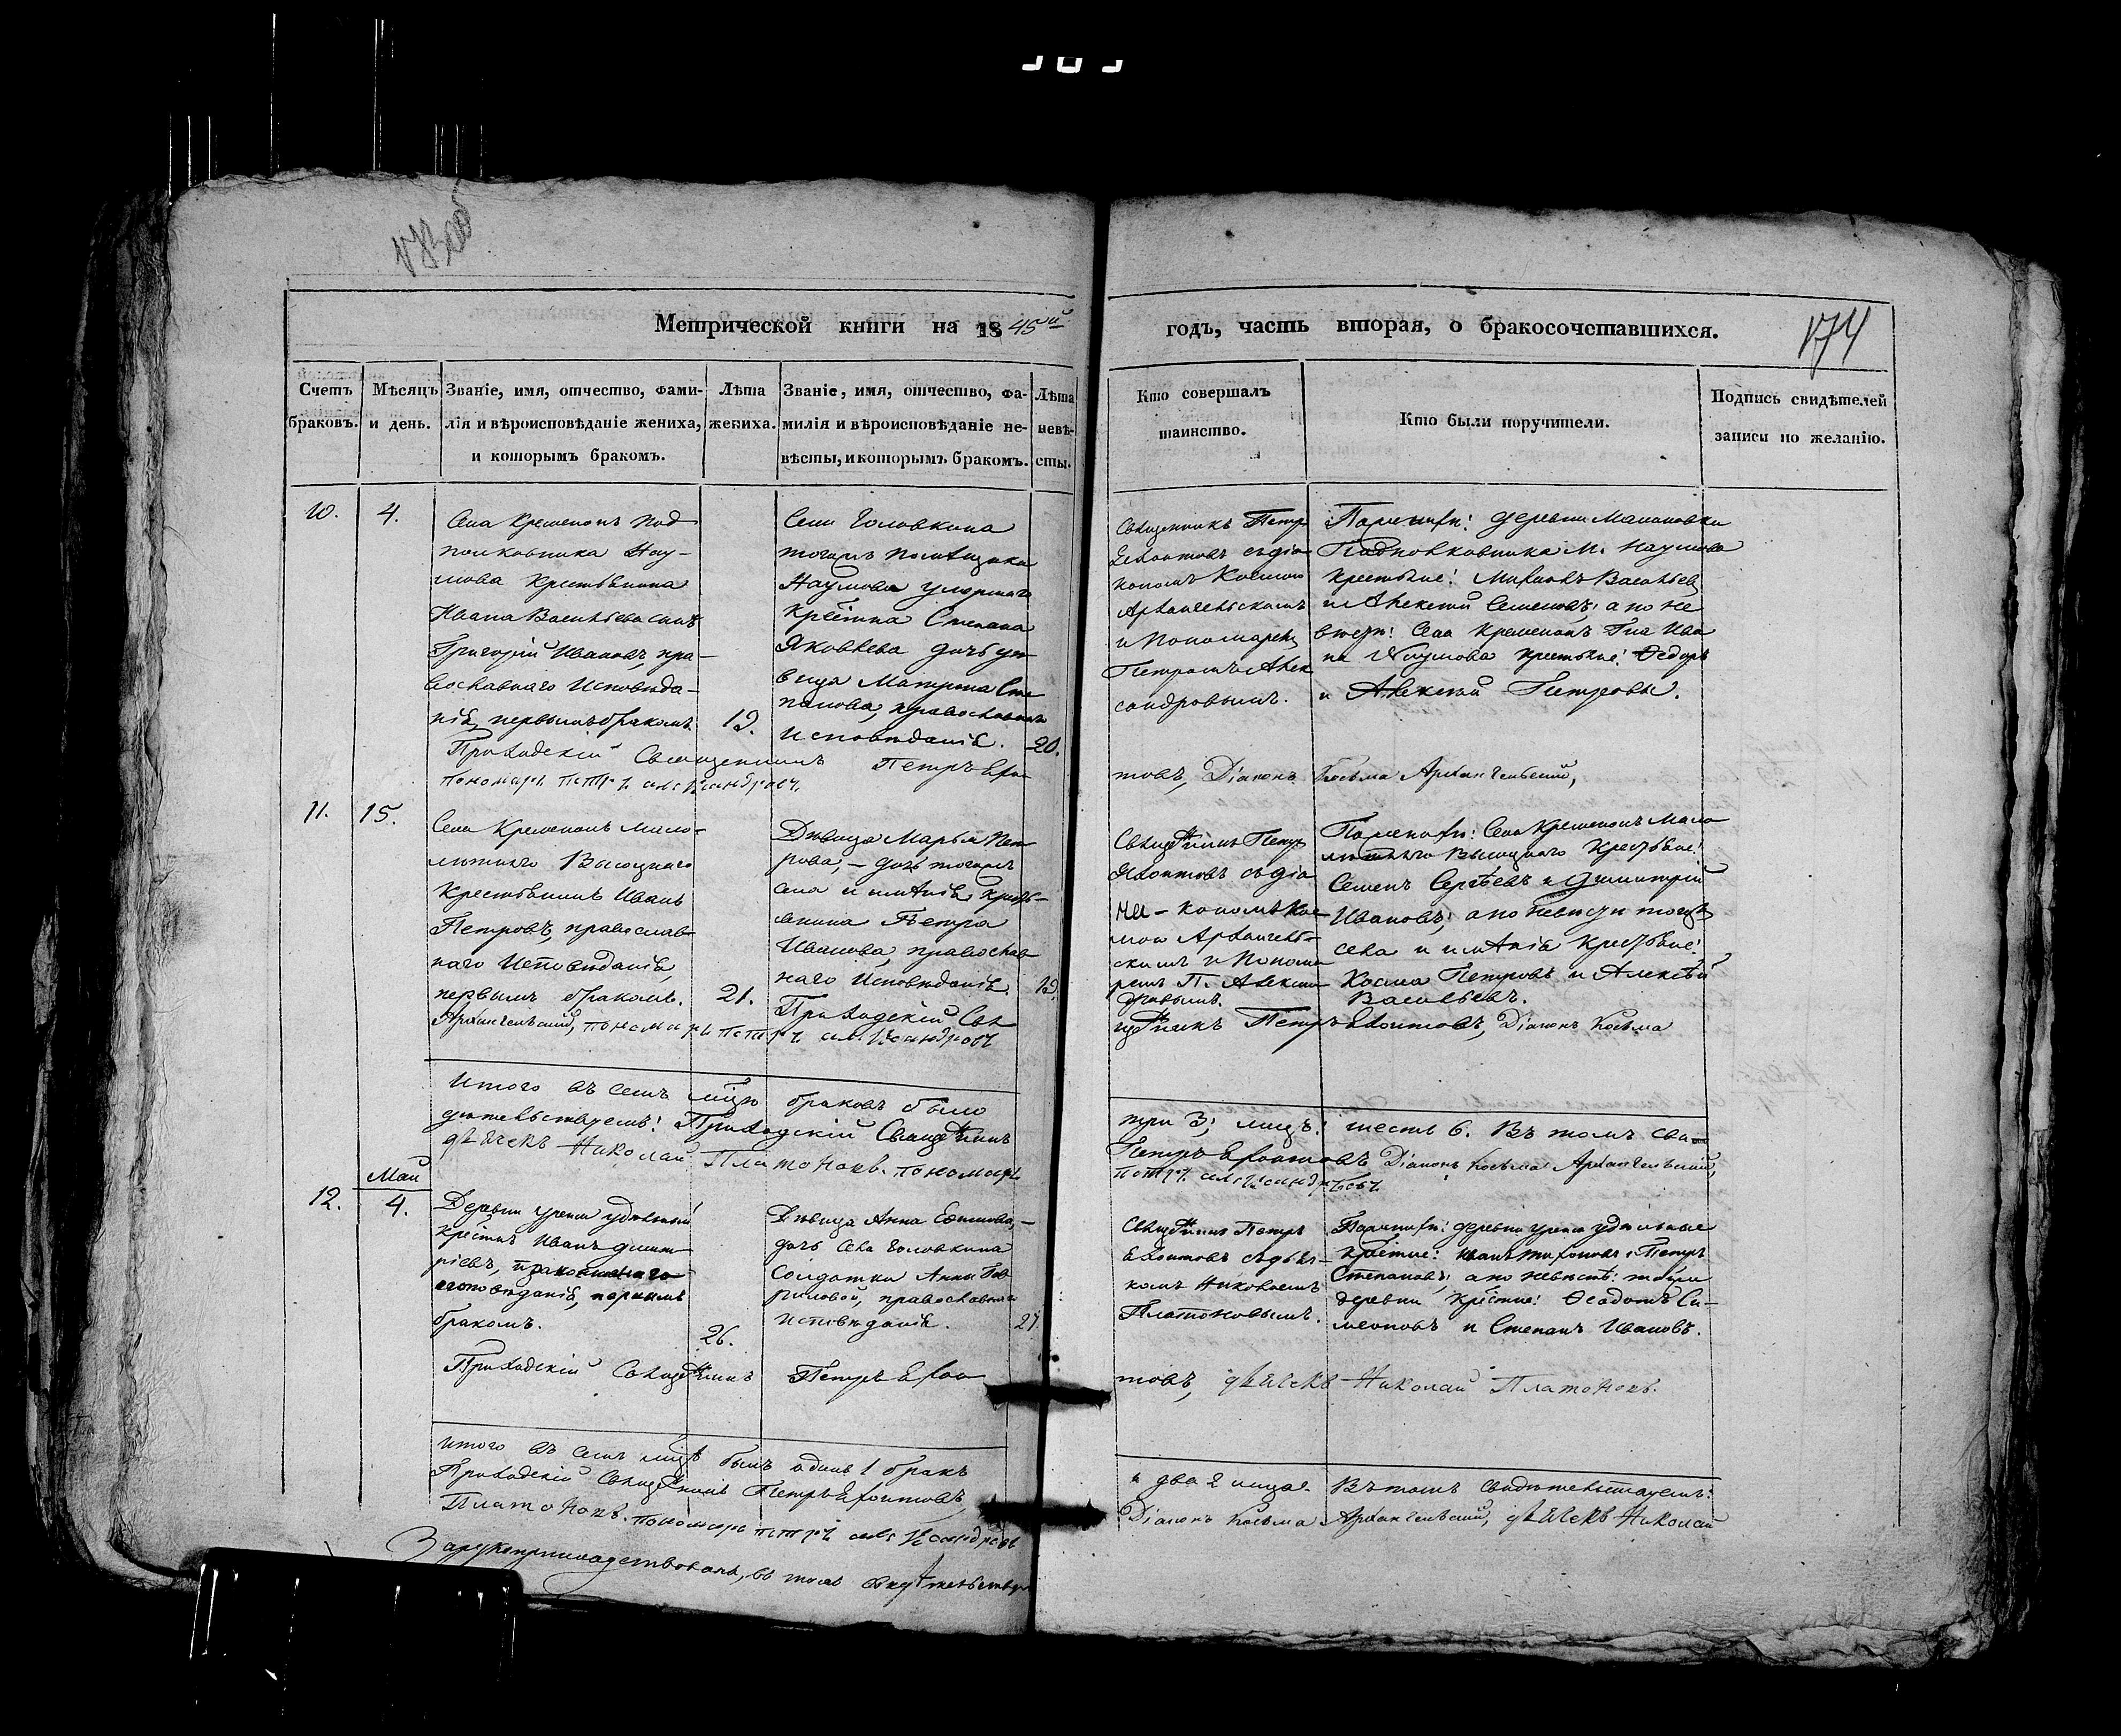 173 об
Метрической книги на 1845й
годъ, часть вторая, о бракосочетавшихся.
174
Счетъ браковъ.
Мѣсяцъ и день.
Званіе, имя, отчество, фами-
лія и вѣроисповѣданіе жениха,
и которымъ бракомъ.
Лѣта
жениха.
Званіе, имя, отчество, фа-
милія и вѣроисповѣданіе не-
вѣсты, и которымъ бракомъ.
Лѣта
невѣ-
сты.
Кто совершалъ
таинство.
Кто были поручители.
Подпись свидѣтелей
записи по желанію.
10.
4.
Села Кременокъ под
полковника Нау-
мова крестьянина
Ивана Васильева сынъ
Григорій Ивановъ, пра-
вославнаго исповѣда-
нія, первымъ бракомъ.
19.
Села Головкина
тогожъ помѣщика
Наумова умершаго
крестина Степана
Яковлева дочь дѣ
вица Матрена Сте
панова, православнаго
исповѣданія.
20.
Священникъ Петръ
Ехоитовъ съ діа
кономъ Космою
Архангельскимъ
и Пономаремъ
Петромъ Алек
сандровымъ.
деревни
Подполковника М. Наумова
крестьяне: Васильевъ
и Алексѣй Семеновъ; а по не
вѣстѣ: Села Кременокъ Гна Ива
на Наумова крестьяне: Ѳедоръ
и Алексѣй Петровы.
Приходскій Священникъ Петръ Ехои
товъ, Діаконъ Косьма Архангельскій,
пономарь петръ александровъ.
11.
15.
Села Кременокъ мало-
лѣтнаго Высоцкаго
крестьянинъ Иванъ
Петровъ, православ
наго исповѣданія,
первымъ бракомъ.
21.
Дѣвица Марья Пет
рова, - дочь тогожъ
села и имѣнія кресть-
янина Петра
Иванова, православ
наго исповѣданія.
19.
Свящѣнникъ Петръ
Ехоитовъ съ діа
кономъ Кос
мою Архангель-
скимъ и Понома
ремъ П. Алексан
дровымъ.
Села Кременокъ мало
лѣтнаго Высоцкаго крестьяне:
Семенъ Сергѣевъ и Димитрій
Ивановъ; а по невѣстѣ тогожъ
села и имѣнія крестьяне:
Косма Петровъ и Алексѣй
Васильевъ.
Приходскій Свя
щенникъ Петръ Ехоитовъ, Діаконъ Косьма
Архангельскій, пономарь петръ александровъ
Итого въ семъ мцѣ браковъ было
три 3; лицъ: шесть 6. Въ томъ сви
дѣтельствуемъ: Приходскій Священникъ
Петръ Ехоитовъ Діаконъ Косьма Архангельскій,
дьячекъ Николай Платоновъ. пономарь
петръ александровъ.
Май
12.
4.
Деревни Урени удѣльный
крестнъ Иванъ Димит
ріевъ, православнаго
исповѣданія, первымъ
бракомъ.
26.
Дѣвица Анна Ефимова, -
дочь села Головкина
солдатки Анны Гав
риловой, православнаго
исповѣданія.
21.
Священникъ Петръ
Ехоитовъ съ дьяч-
комъ Николаемъ
Платоновымъ.
деревни Урени удѣльные
крестне: Иванъ Тихоновъ и Петръ
Степановъ; а по невѣстѣ: тойже
деревни крестне: Ѳеодотъ Си-
меоновъ и Степанъ Ивановъ.
Приходскій Священникъ Петръ Ехои
товъ, дьячекъ Николай Платоновъ.
Итого въ семъ мцѣ былъ одинъ 1 бракъ
и два 2 лица. Въ томъ свидѣтельствуемъ:
Приходскій Священникъ Петръ Ехоитовъ,
Діаконъ Косьма Архангельскій, дьячекъ Николай
Платоновъ. пономарь петръ александровъ
въ томъ свидѣтельствую